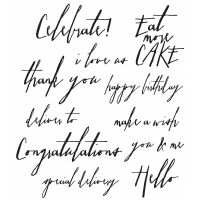 Celebrate!
Eat
more
CAKE
i love us
thank you
happy birthday
deliver to
make a wish
Congratulations
you & me
special delivery
Hello